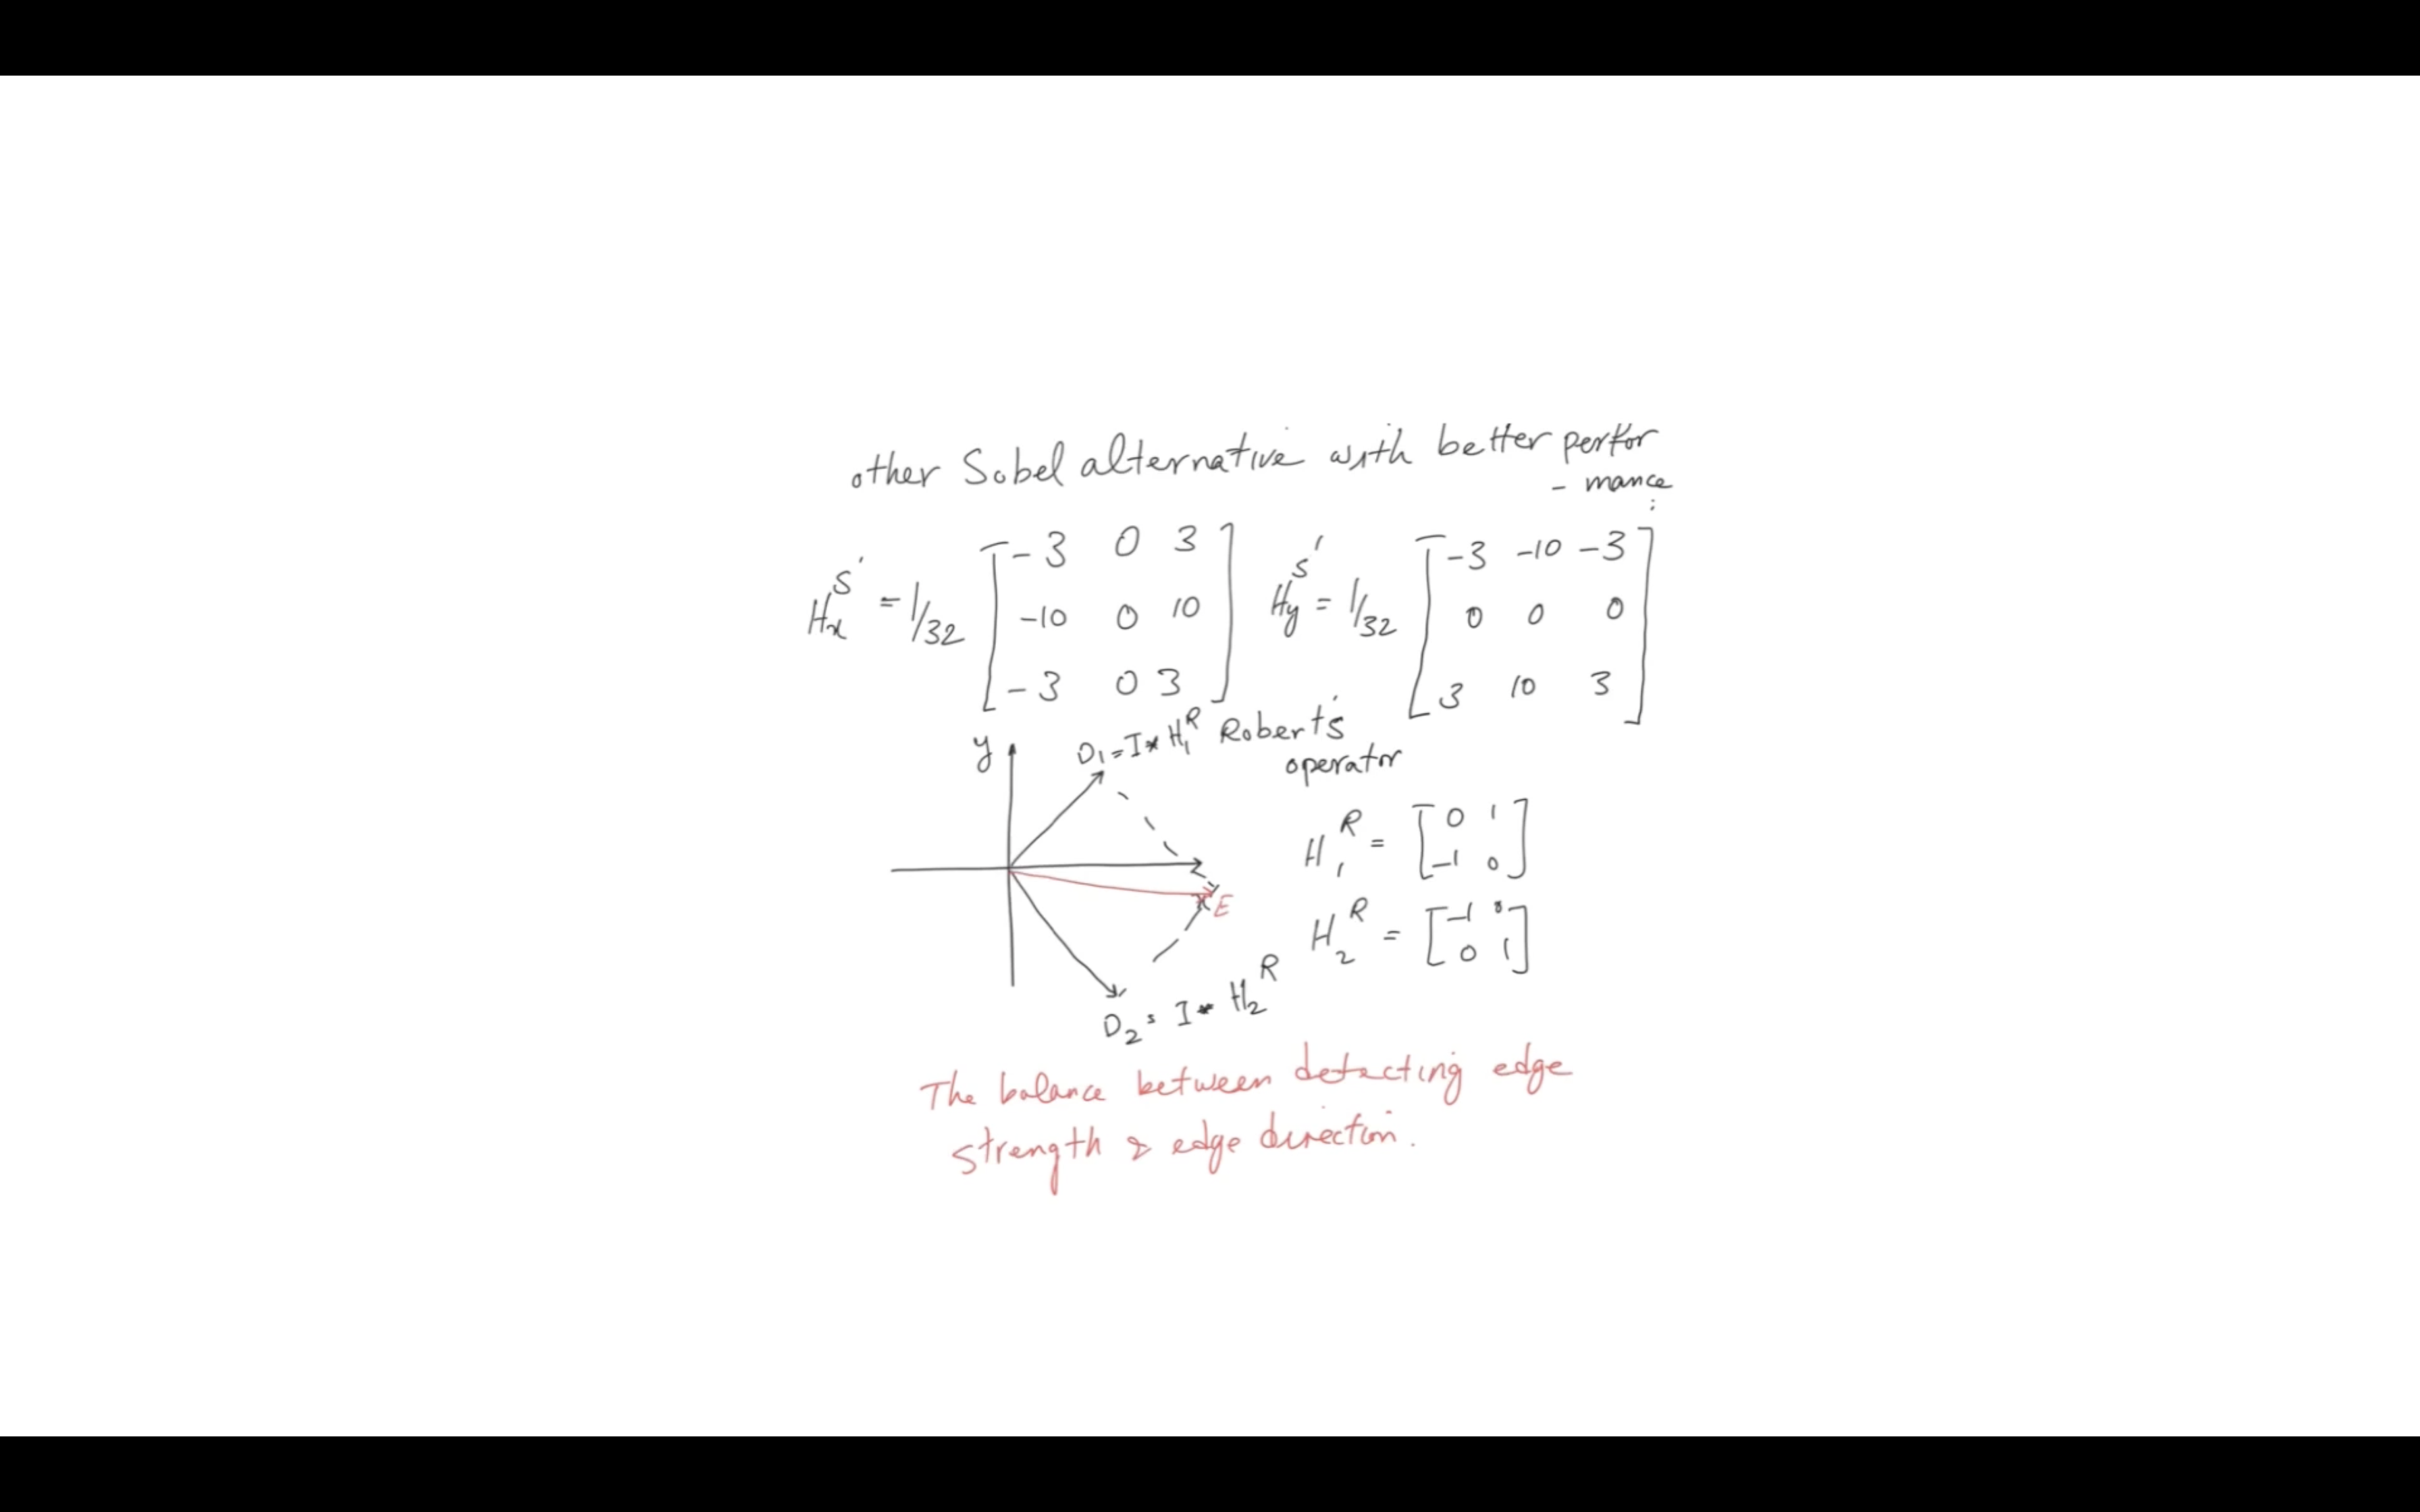 other Sobel alternative with better perfor
- mance :
Hx S' = 1/32 [ -3 0 3
-10 0 10
-3 0 3 ]
Hy S' = 1/32 [ -3 -10 -3
0 0 0
3 10 3 ]
y
D1 = I * H1 R
Robert's
operator
x
E
D2 = I * H2 R
H1 R = [ 0 1
-1 0 ]
H2 R = [ -1 0
0 1 ]
The balance between detecting edge
strength & edge direction.